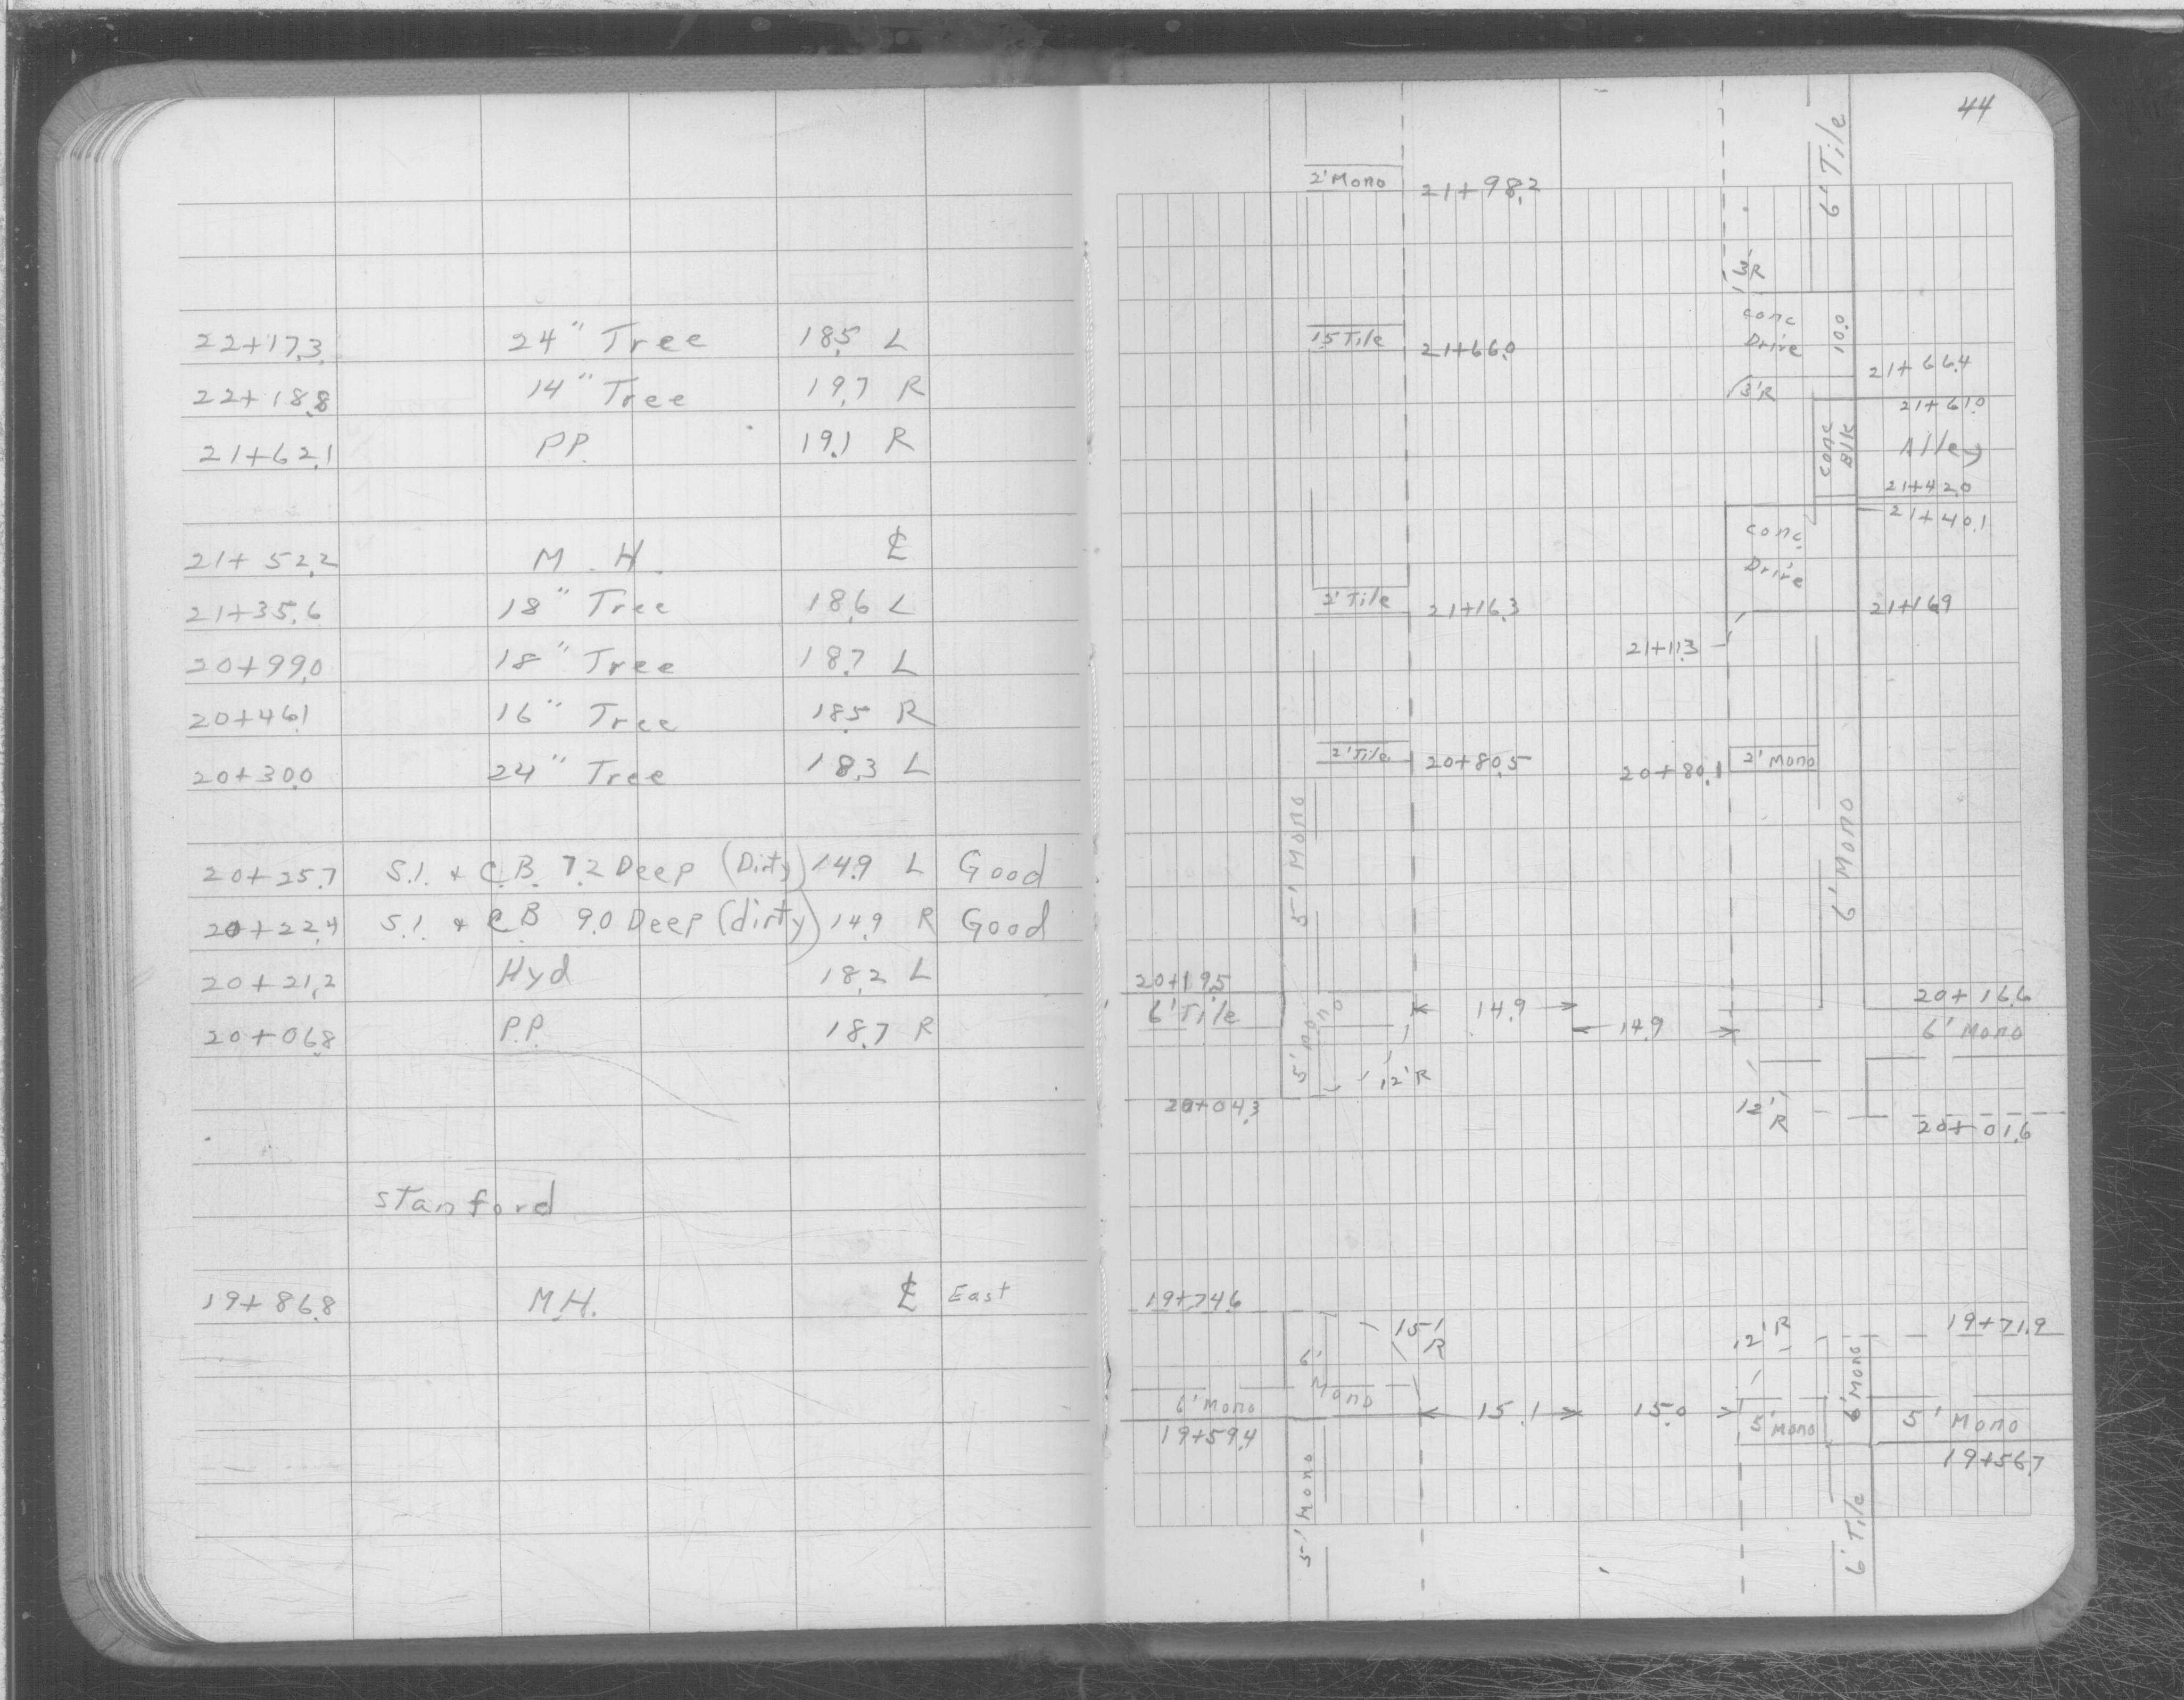 22+17.3 24" Tree 18.5 L
22+18.8 14" Tree 19.7 R
21+62.1 P.P. 19.1 R
21+52.2 M.H. ℄
21+35.6 18" Tree 18.6 L
20+99.0 18" Tree 18.7 L
20+46.1 16" Tree 18.5 R
20+30.0 24" Tree 18.3 L
20+25.7 S.I. + C.B. 7.2 Deep (Dirty) 14.9 L Good
20+22.4 S.I. + C.B. 9.0 Deep (dirty) 14.9 R Good
20+21.2 Hyd 18.2 L
20+06.8 P.P. 18.7 R
Stanford
19+86.8 M.H. ℄ East
44
6' Tile
2' Mono 21+98.2
3'R
conc
Drive
10.0
15 Tile 21+66.0
3'R
21+66.4
21+61.0
conc
Blk
Alley
21+42.0
21+40.1
conc
Drive
2' Tile 21+16.3
21+16.9
21+11.3
2' Tile 20+80.5
20+80.1 2' Mono
5' Mono
6' Mono
20+19.5
6' Tile
5' Mono
14.9
14.9
20+16.6
6' Mono
12'R
20+04.3
12'
R
20+01.6
19+74.6
15'
R
12'R
19+71.9
6'
Mono
6' Mono
6' Mono
15.1
15.0
5' Mono
5' Mono
19+59.4
19+56.7
5' Mono
6' Tile